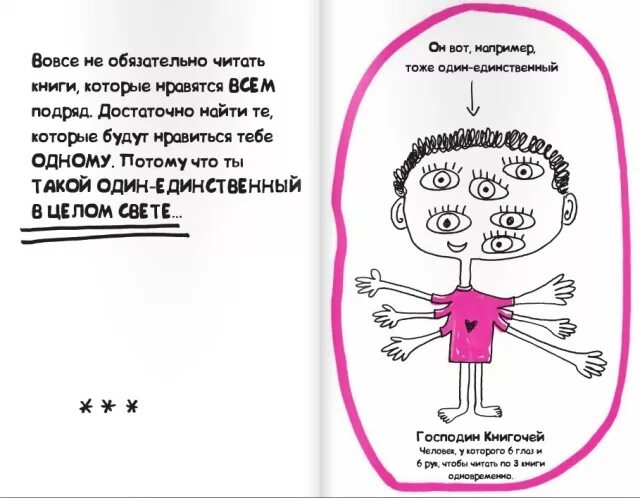 Вовсе не обязательно читать
книги, которые нравятся ВСЕМ
подряд. Достаточно найти те,
которые будут нравиться тебе
ОДНОМУ. Потому что ты
ТАКОЙ ОДИН-ЕДИНСТВЕННЫЙ
В ЦЕЛОМ СВЕТЕ...
* * *
Он вот, например,
тоже один-единственный
Господин Книгочей
Человек, у которого 6 глаз и
6 рук, чтобы читать по 3 книги
одновременно.